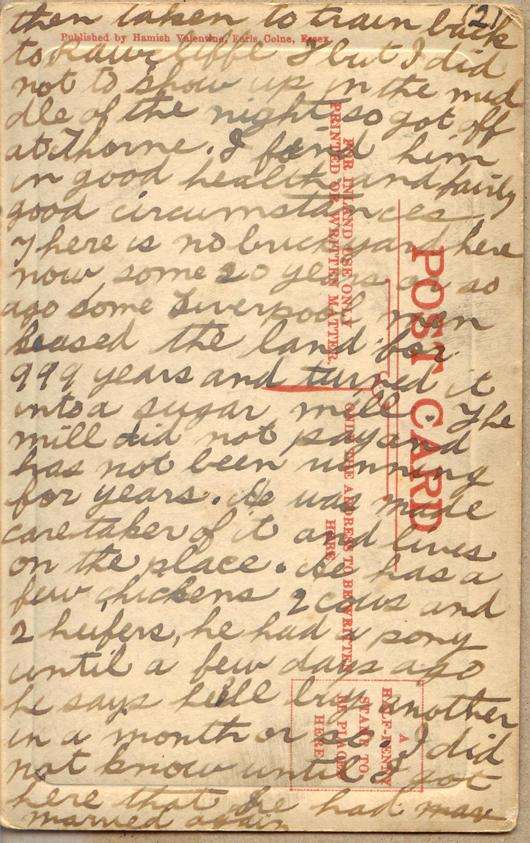 (2)
then taken to train back
Published by Hamish Valentine, Earls Colne, Essex.
to Rawcliffe I but I did
not to show up in the mid
dle of the night so got off
at Thorne. I found him
in good health and fairly
good circumstances.
There is no brickyard here
now some 20 years or so
ago some Liverpool men
leased the land for
999 years and turned it
into a sugar mill. The
mill did not pay and
has not been running
for years. He was made
caretaker of it and lives
on the place. He has a
few chickens 2 cows and
2 heifers, he had a pony
until a few days ago
he says he'll buy another
in a month or so. I did
not know until I got
here that he had mar
married again
POST CARD
FOR INLAND USE ONLY
PRINTED OR WRITTEN MATTER.
ONLY THE ADDRESS TO BE WRITTEN
HERE
A
HALF-PENNY
STAMP TO
BE PLACED
HERE